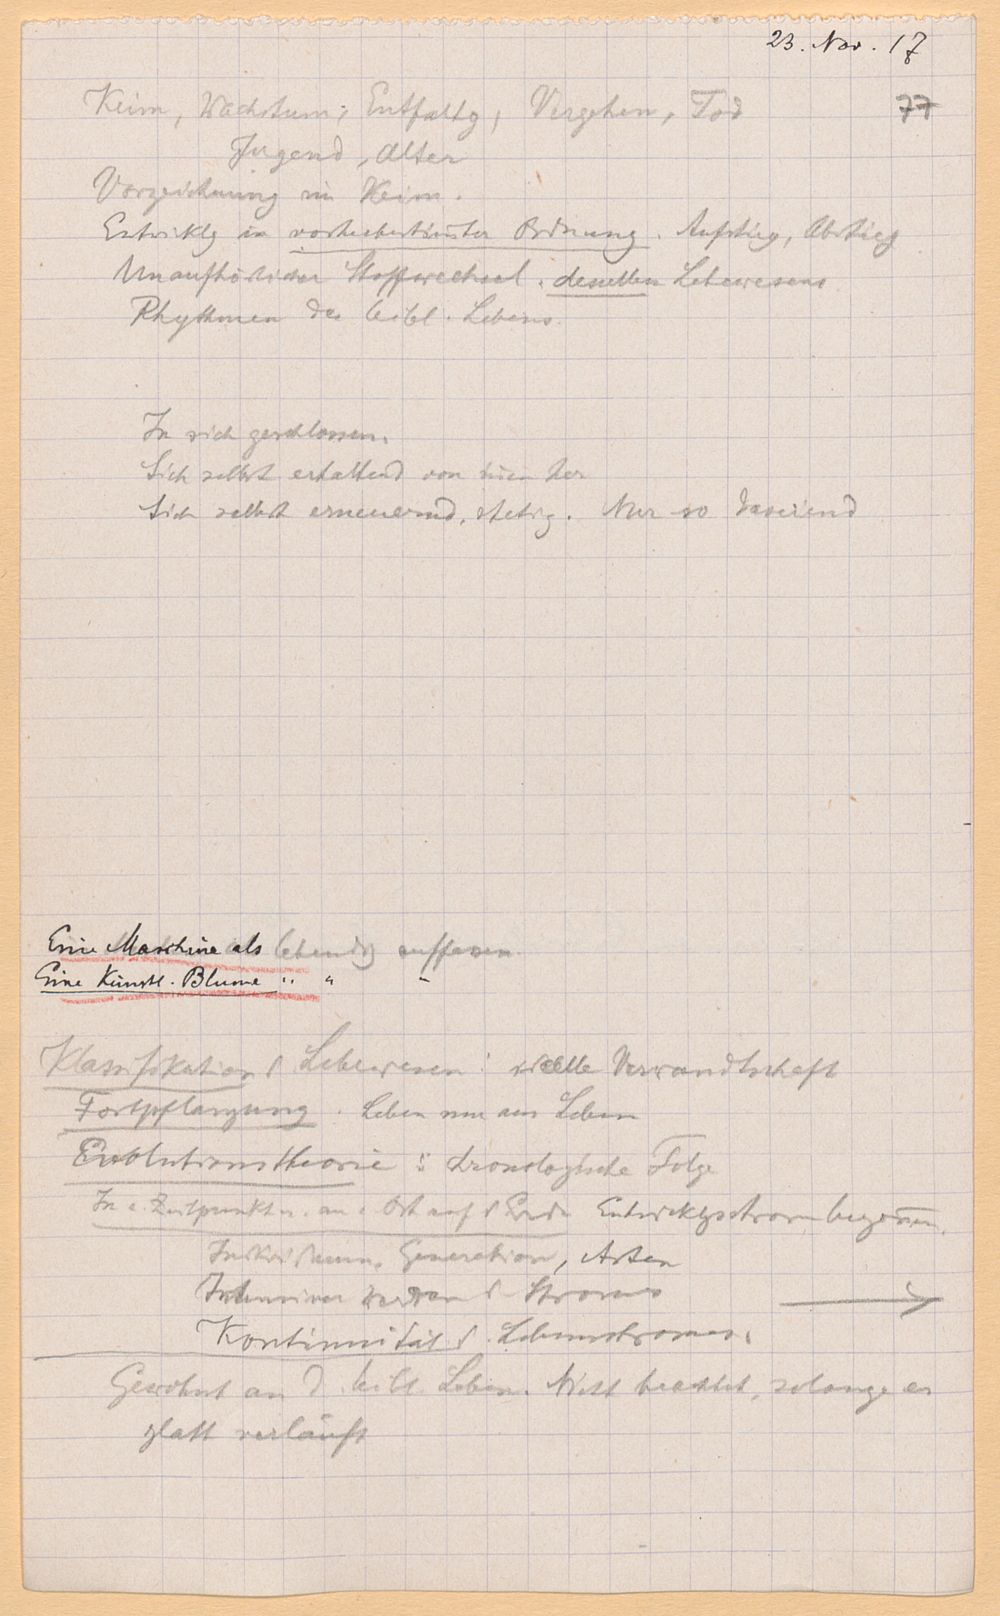 23. Nov. 17
77
Keim, Wachstum, Entfaltg, Vergehen, Tod
Jugend, Alter
Vorzeichnung im Keim.
Entwicklg in vorherbestimmter Ordnung. Aufstieg, Abstieg
Unaufhörlicher Stoffwechsel. desselben Lebewesens
Rhythmen des leibl. Lebens.
In sich geschlossen.
Sich selbst erhaltend von innen her
Sich selbst erneuernd, stetig. Nur so daseiend
Eine Maschine als lebendig auffassen.
Eine künstl. Blume " " "
Klassifikation d Lebewesen: Verwandtschaft
Fortpflanzung. Leben nur aus Leben
Evolutionstheorie: chronologische Folge
In e. Zeitpunkt u. an e Ort auf d Erde Entwicklgsstrom begonnen.
Individuum, Generation, Arten
Intensiver werden d Stromes
Kontinuität d. Lebensstromes.
Gewöhnt an d. leibl. Leben. Nicht beachtet, solange es
glatt verläuft